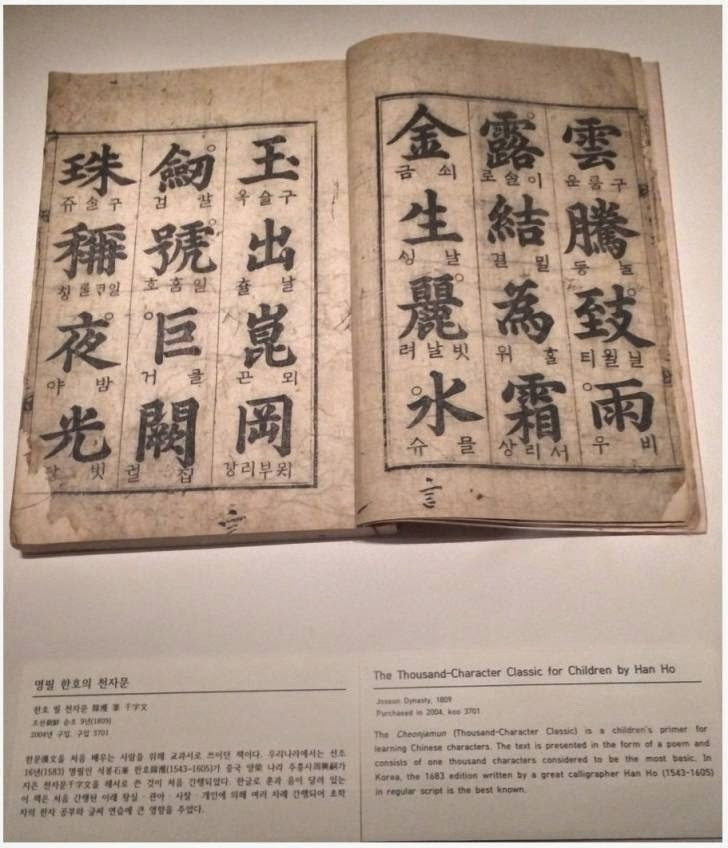 雲 구룸운 騰 놀등 致 닐윌티 雨 비우
露 이슬로 結 ᄆᆡᆯ결 為 ᄒᆞᆯ위 霜 서리상
金 쇠금 生 날ᄉᆡᆼ 麗 빗날려 水 믈슈
玉 구슬옥 出 날츌 崑 뫼곤 岡 묏부리강
劒 칼검 號 일홈호 巨 클거 闕 집궐
珠 구슬쥬 稱 일ᄏᆞᆯ칭 夜 밤야 光 빗
명필 한호의 천자문
한호 필 천자문 韓濩 筆 千字文
조선朝鮮 순조 9년(1809)
2004년 구입, 구입 3701
한문漢文을 처음 배우는 사람을 위해 교과서로 쓰이던 책이다. 우리나라에서는 선조
16년(1583) 명필인 석봉石峯 한호韓濩(1543-1605)가 중국 양梁 나라 주흥사周興嗣가
지은 천자문千字文을 해서로 쓴 것이 처음 간행되었다. 한글로 훈과 음이 달려 있는
이 책은 처음 간행된 이래 왕실 · 관아 · 사찰 · 개인에 의해 여러 차례 간행되어 초학
자의 한자 공부와 글씨 연습에 큰 영향을 주었다.
The Thousand-Character Classic for Children by Han Ho
Joseon Dynasty, 1809
Purchased in 2004, koo 3701
The Cheonjamun (Thousand-Character Classic) is a children's primer for
learning Chinese characters. The text is presented in the form of a poem and
consists of one thousand characters considered to be the most basic. In
Korea, the 1683 edition written by a great calligrapher Han Ho (1543-1605)
in regular script is the best known.